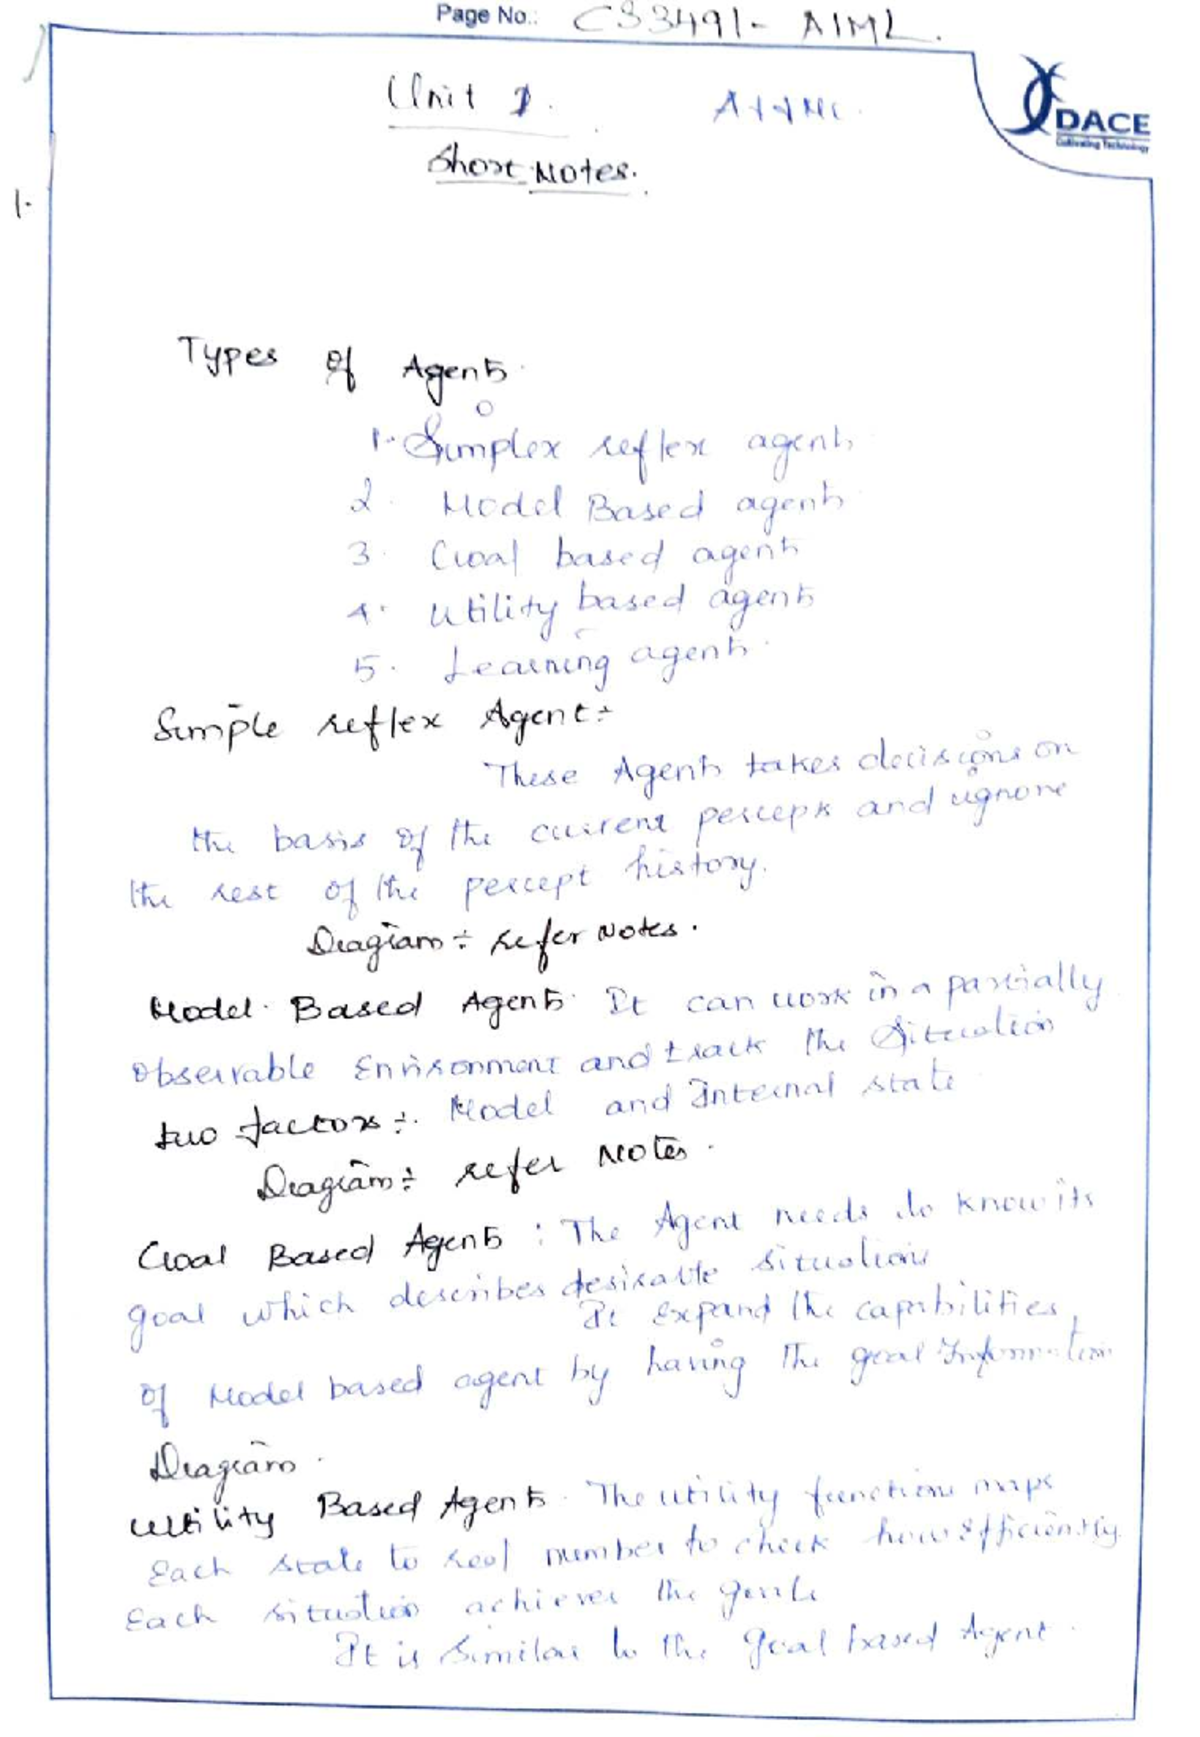 Page No.: CS3491- AIML.
DACE
Cultivating Technology
Unit 1.
Short Notes.
1.
Types of Agents.
1. Simplex reflex agents
2. Model Based agents
3. Goal based agents
4. Utility based agents
5. Learning agents.
Simple reflex Agent:-
These Agents takes decisions on
the basis of the current percepts and ignore
the rest of the percept history.
Diagram:- refer Notes.
Model. Based Agents. It can work in a partially
observable Environment and track the Situation
two factors:- Model and Internal state
Diagram:- refer Notes.
Goal Based Agents: The Agent needs to know its
goal which describes desirable situations
It expand the capabilities
of Model based agent by having the goal Information
Diagram.
Utility Based Agents. The utility function maps
Each state to real number to check how efficiently
Each situation achieves the goals
It is similar to the goal based Agent.